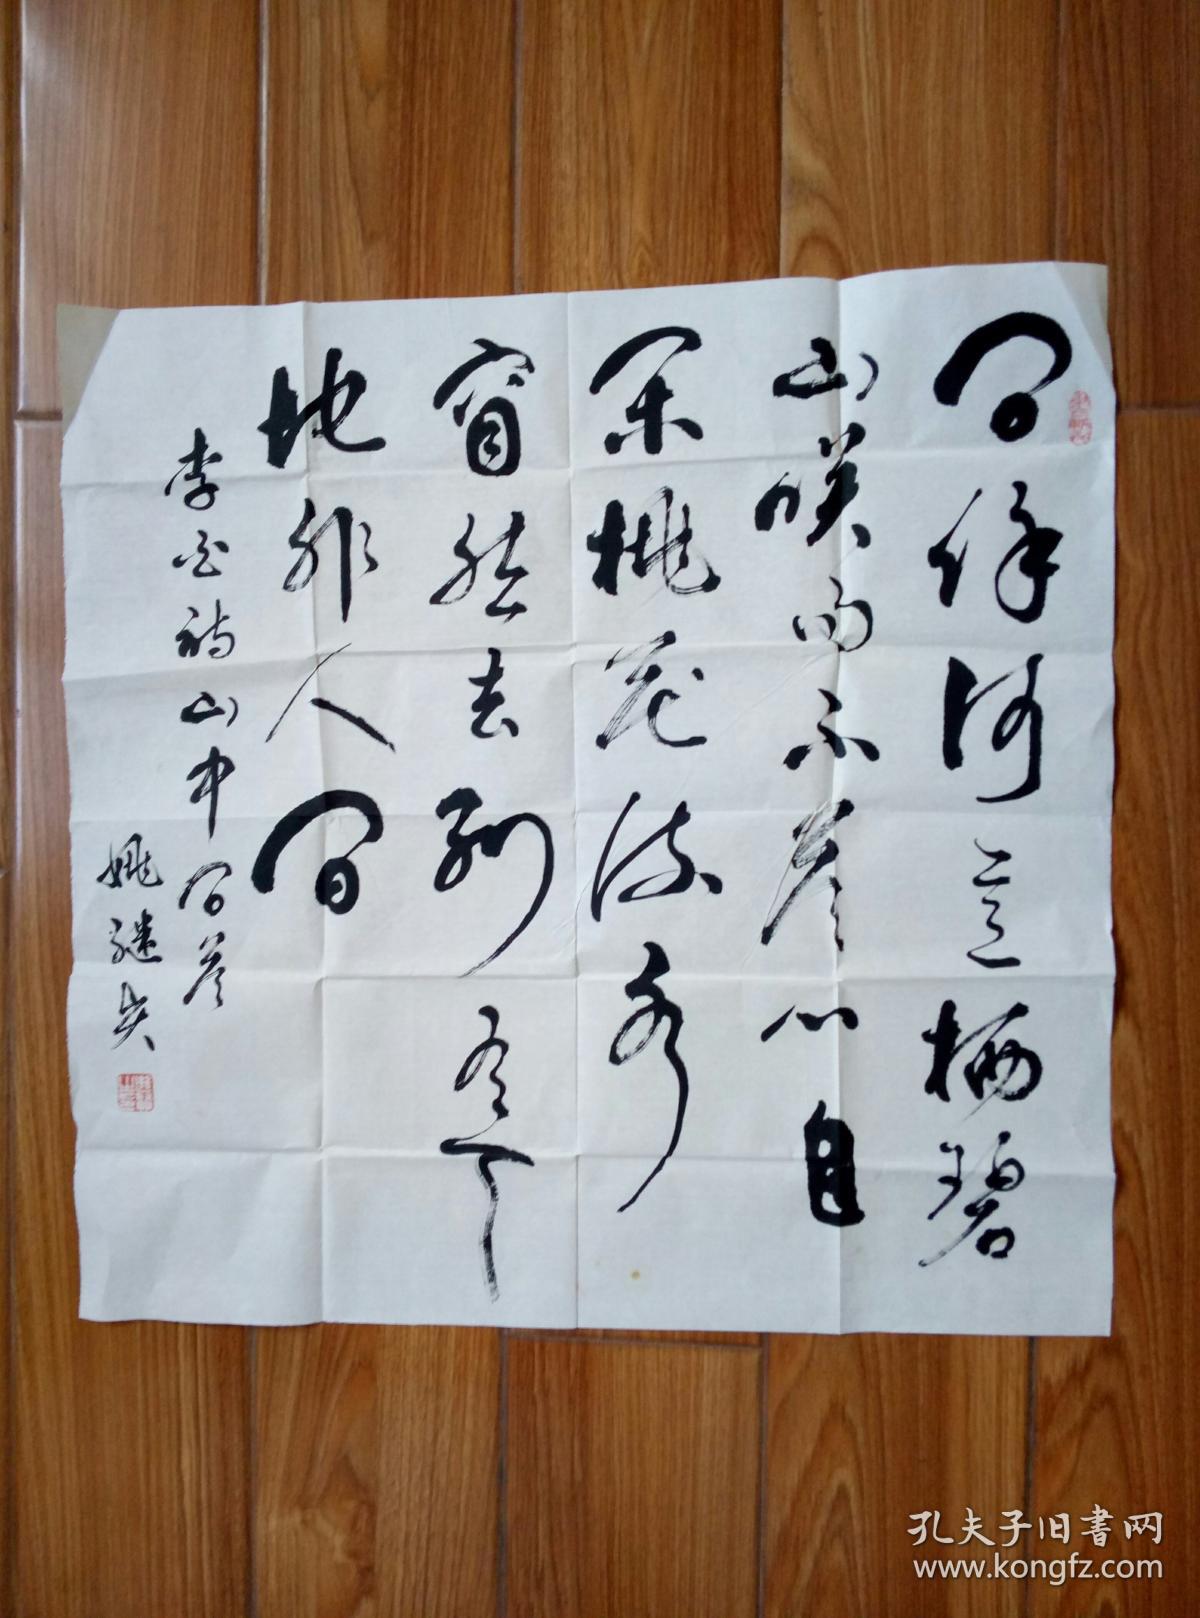 问余何意栖碧
山咲而不答心自
闲桃花流水
窅然去别有天
地非人间
李白诗山中问答
姚继
孔夫子旧書网
www.kongfz.com